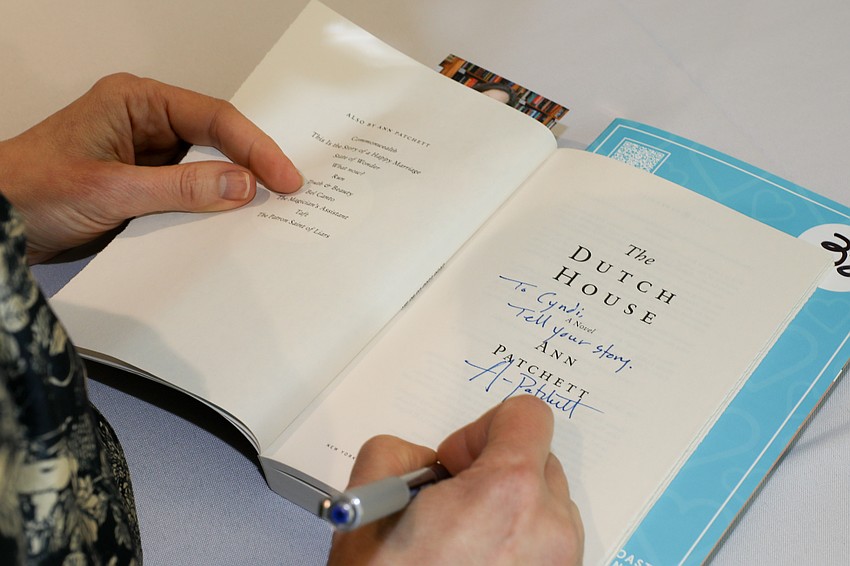 ALSO BY ANN PATCHETT
Commonwealth
This Is the Story of a Happy Marriage
State of Wonder
What now?
Run
Truth & Beauty
Bel Canto
The Magician's Assistant
Taft
The Patron Saint of Liars
The
DUTCH
HOUSE
To Cyndi,
A Novel
Tell your story.
ANN
PATCHETT
A- Patchett
NEW YORK